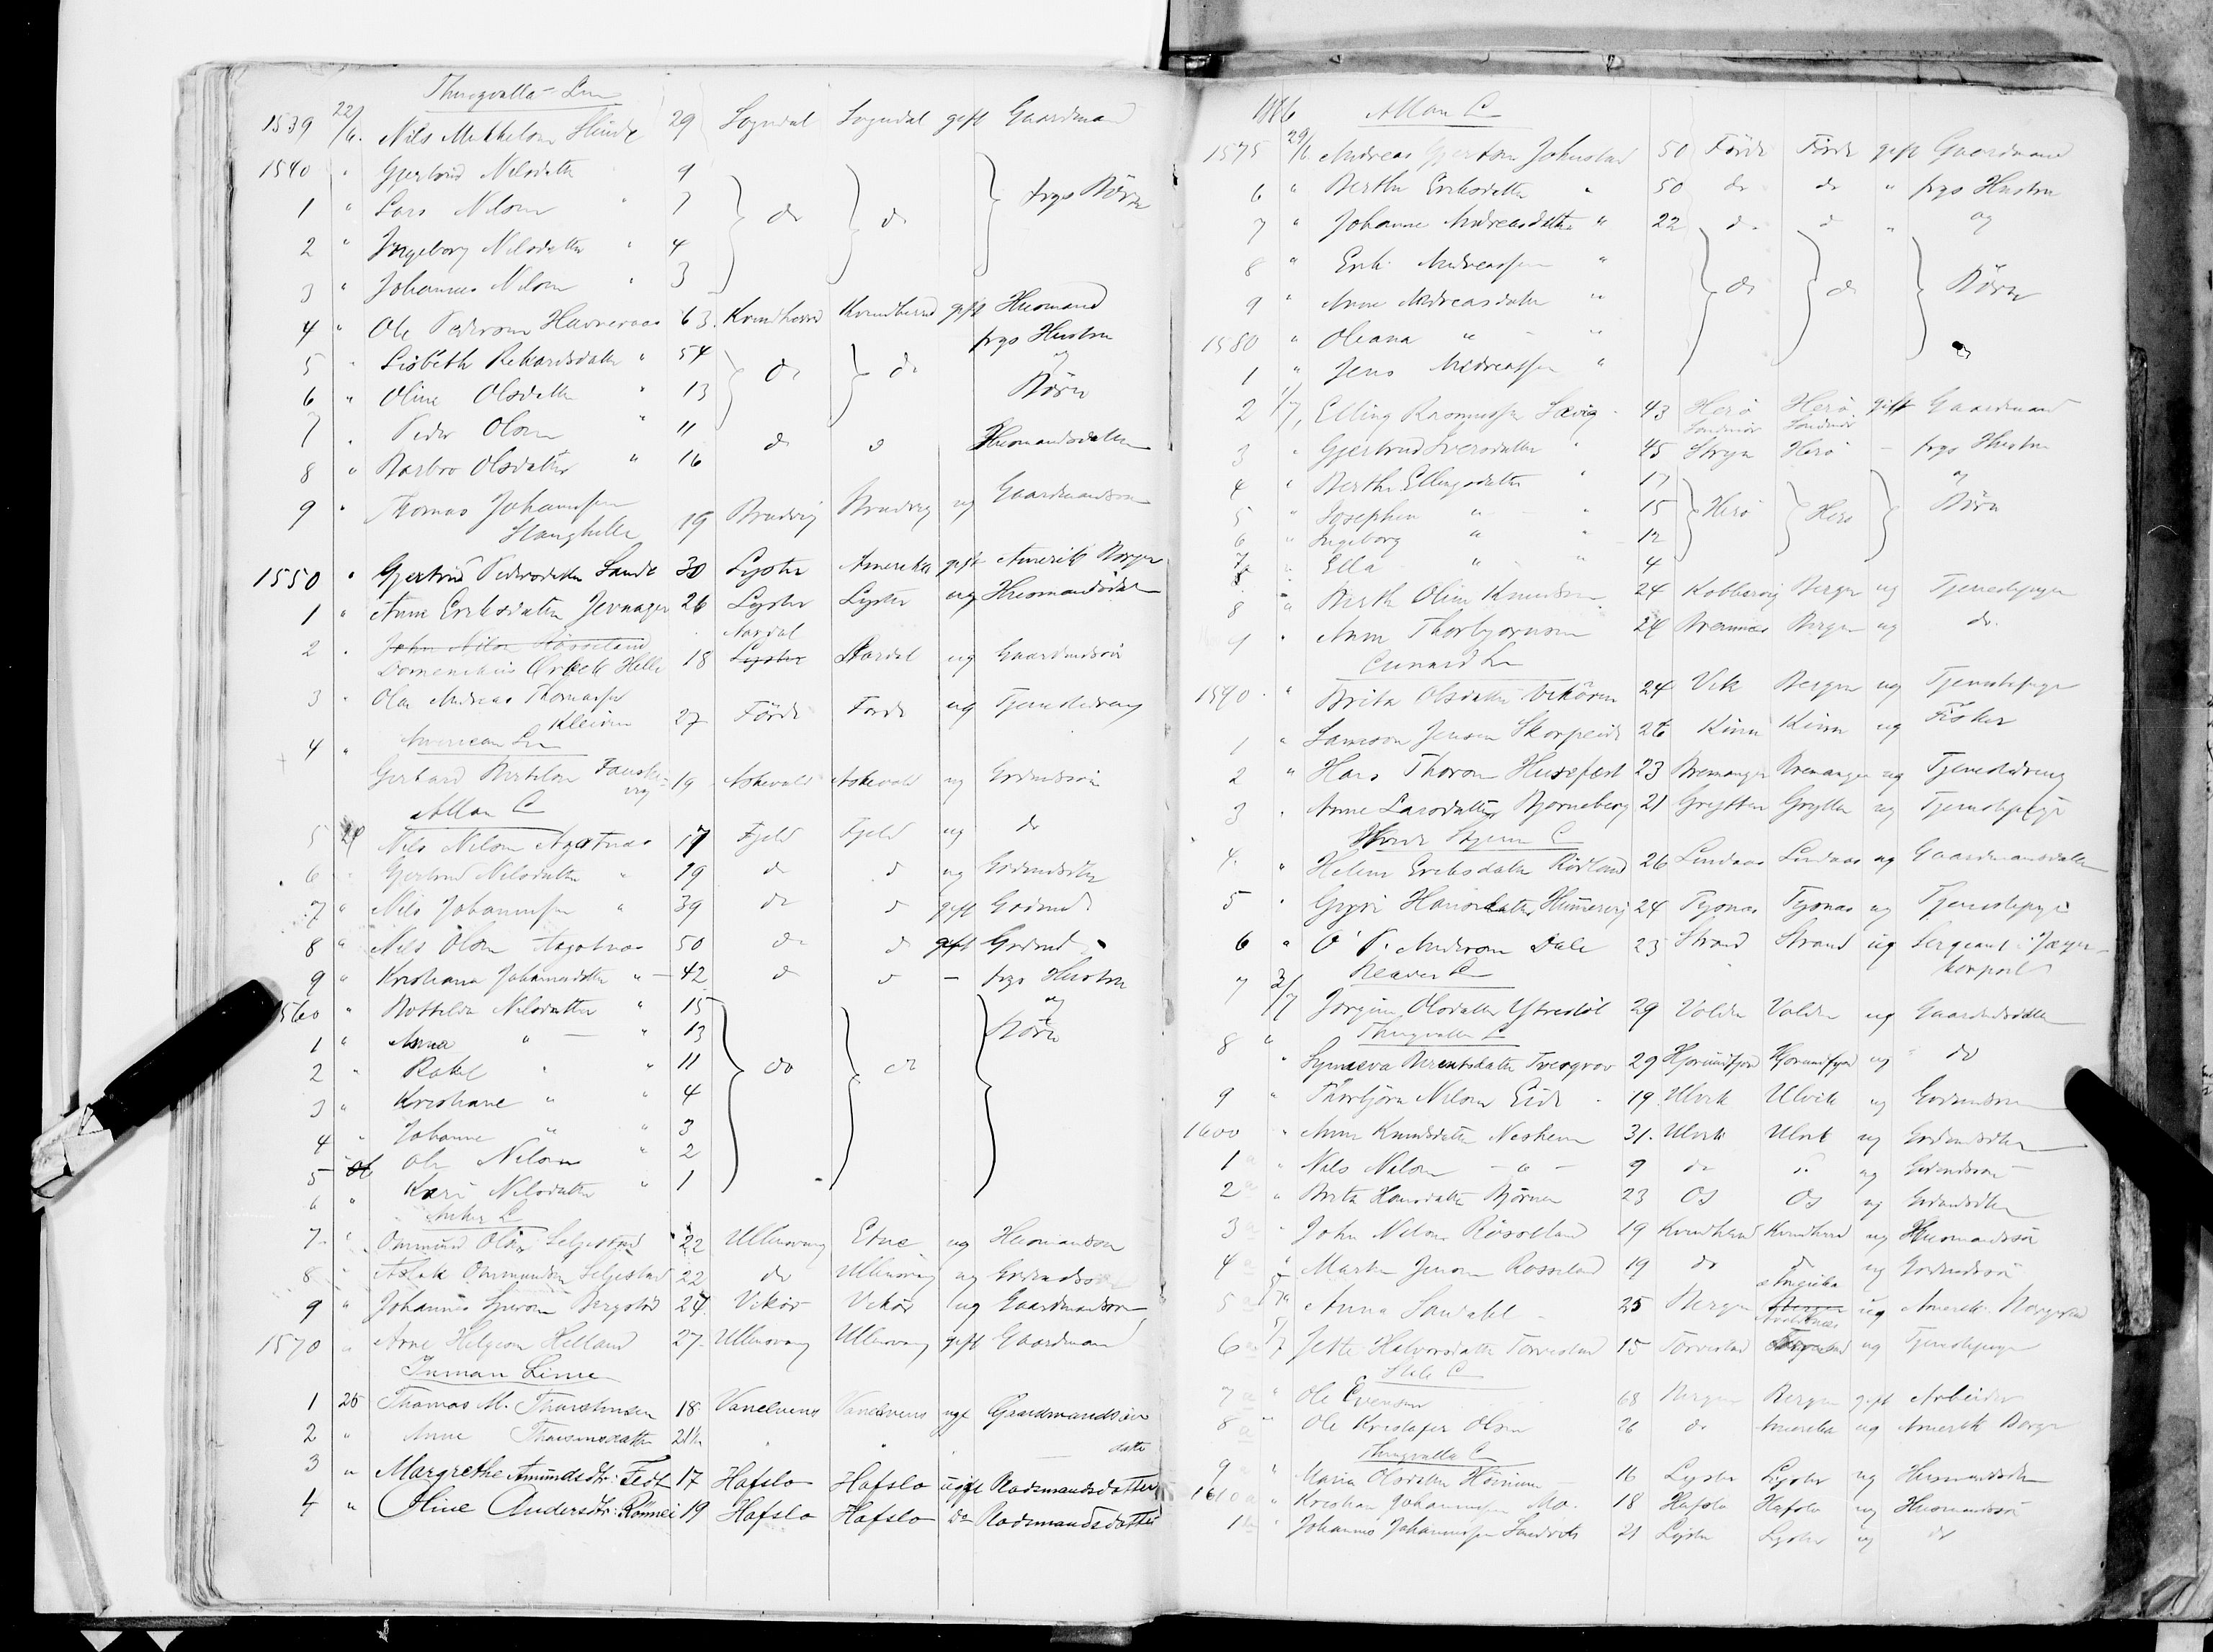 Thingvalla Lin
1539 22/6. Nils Mikkelsen 29 Sogndal Sogndal gift Gaardmand
1540 " Gjertrud Nilsdatter 9
1 " Lars Nilsen " 7 do do frgs Børn
2 " Ingeborg Nilsdatter " 4
3 " Johannes Nilsen " 3
4 " Ole Pederson 63. Kvindherred Kvindherred gift Husmand
5 " Lisbeth Rikardsdatter " 54 do do frgs Hustru
6 " Oline Olsdatter " 13 og Børn
7 " Peder Olsen " 11
8 " Barbro Olsdatter " 16 do do Husmandsdatter
9 " Thomas Johannesen
Stanghelle 19 Bruvig Bruvig ug Gaardmandsøn
1550 " Gjertrud Pedersdatter Sande 30 Lyster Amerika gift Amerik Borger
1 " Anne Eriksdatter 26 Lyster Lyster ug Husmandsdatter
2 " John Nilsen Røsseland Aardal
Helle 18 Lyster Aardal ug Gaardmdsøn
3 " Ole Andreas Thomassen
Kleiven 27 Førde Førde ug Tjenestedreng
4 " American Lin
Gerhard 19 Askevold Askevold ug Grdmdsøn
Allan C
5 24 Nils Nilsen Agotnæs 17 Fjeld Fjeld ug do
6 " Gjertrud Nilsdatter " 19 do do ug Grdmdsdtr
7 " Nils Johannesen " 39 do do gift Grdmd
8 " Nils Olsen Agotnæs 50 do do gift Grdmd
9 " Kristiane Johannesdatter " 42 do do — frgs Hustru
1560 " Bothilda Nilsdatter " 15 og
1 " Anna " — " 13 Børn
2 " Rakel " " 11 do do
3 " Kristiane " " 4
4 " Johanne " " 3
5 Ole Nilsen " 2
6 " Kari Nilsdatter " 1
Anker L
7 " Ommund Olsen Seljestad 22 Ullensvang Etne ug Husmandsøn
8 " Aslak Ommundsen Seljestad 22 do Ullensvang ug Grdmdsøn
9 " Johannes Bergstø 24 Vikør Vikør ug Gaardmandsøn
1570 " Arne Helgesen Helland 27 Ullensvang Ullensvang gift Gaardmand
Inman Line
1 25 Thomas M. Thorstensen 18 Vanelvens Vanelvens ugf Gaardmandsøn
2 " Anne 21½ " " — datter
3 " Margrethe Amundsdtr: Fedt 17 Hafslo Hafslo ugft Radsmandsdatter
4 " Oline Andersdtr: Rønnei 19 Hafslo Hafslo Do Radsmandsdatter
1886 Allan C
1575 29/6 Andreas Gjertsen Johnstad 50 Førde Førde gift Gaardmand
6 " Berthe Eriksdatter " 50 do do " frgs Hustru
7 " Johanne Andreasdatter " 22 do do " og
8 " Erik Andreassen "
9 " Anne Andreasdatter " do do Børn
1580 " Oleana " — "
1 " Jens Andreassen "
2 1/7, Elling Rasmussen Sævig 43 Herø Herø gift Gaardmand
Søndmør Søndmør
3 " Gjertrud Iversdatter " 45 Stryn Herø — frgs Hustru
4 " Berthe Ellingsdatter " 17 og
5 " Josephine " — " 15 Herø Herø Børn
6 " Ingeborg " " 12
7 " Ella " " 4
8 " Berthe Oline Knudsen 24 Kobbervig Bergen ug Tjenestepige
9 " Anna Thorbjørnsen 24 Bremnes Bergen ug do
Cunard L
1590 " Brita Olsdatter Vikøren 24 Vik Bergen ug Tjenestepige
1 " Samson Jensen Skorpeide 26 Kinn Kinn ug Fisker
2 " Hans Thoren Husefest 23 Bremanger Bremanger ug Tjenestedreng
3 " Anne Larsdatter Bjørneberg 21 Grytten Grytten ug Tjenestepige
Hvide Stjerne C
4 " Helene Eriksdatter Rødland 26 Lindaas Lindaas ug Gaardmandsdatter
5 " Gyri Hansdatter 24 Tysnæs Tysnæs ug Tjenestepige
6 " O P. Anderson Dale 23 Strand Strand ug Sergeant i Jæger-
Beaver L korpset
7 2/7 Jørgine Olsdatter Ytrestøl 29 Volden Volden ug Gaardmdsdatter
Thingvalla L
8 " Synneva Berentsdatter Tvergrov 29 Hjørundfjord Hjørundfjord ug do
9 " Thorbjørn Nilsen Eide 19 Ulvik Ulvik ug Grdmdsøn
1600 " Anna Knudsdatter Nesheim 31. Ulvik Ulvik ug Grdmdsdtr
1 " Nils Nilsen — " — 9 do do ug Grdmdsøn
2 " Brita Hansdatter Bjørnen 23 Os Os ug Grdmdsdtr
3 " John Nilsen Røsseland 19 Kvindherred Kvindherred ug Husmandssøn
4 " Martin Jensen Rosseland 19 do do ug Grdmdssøn
Amerika
5 Anna Sandahl 25 Bergen Bergen ug Amerik. Borgerske
6 7 Jette Halvorsdatter Torvestad 15 Torvestad ug Tjenestepige
State C
7 " Ole Evensen 68 Bergen Bergen gift Arbeider
8 " Ole Kristofer Olsen 26 do Amerika ug Amerik Borger
Thingvalla C
9 " Maria Olsdatter 16 Lyster Lyster ug Husmandsdtr
1610 " Kristian Johannessen Mo. 18 Hafslo Hafslo ug Husmandssøn
1 " Johannes Johannessen Sandvik 21 Lyster Lyster ug do